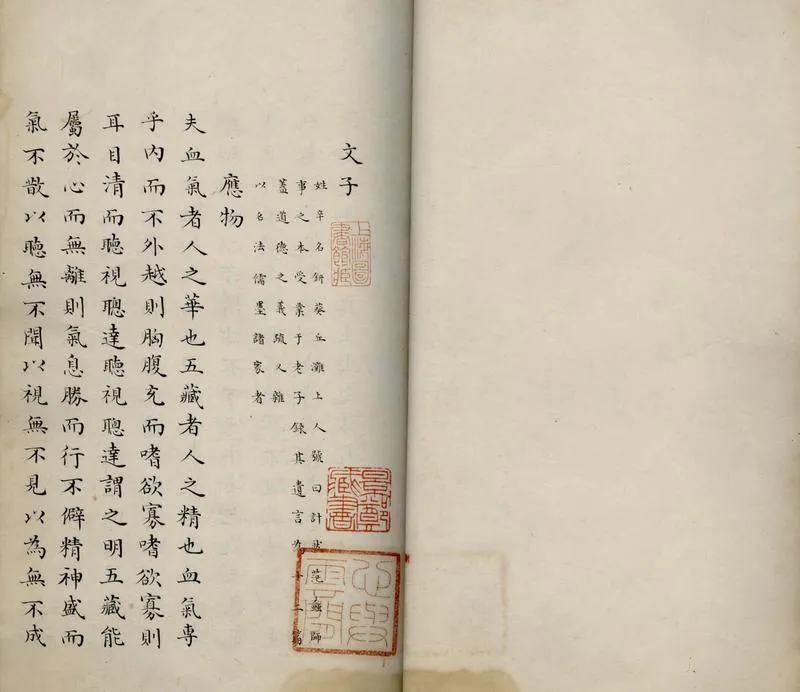 文子
姓辛名鈃葵丘灘上人號曰計然范蠡師
事之本受業于老子錄其遺言為十二篇
蓋道德之義疏人雜
以名法儒墨諸家者
應物
夫血氣者人之華也五藏者人之精也血氣專
乎内而不外越則胸腹充而嗜欲寡嗜欲寡則
耳目清而聽視聰達聽視聰達謂之明五藏能
屬於心而無離則氣息勝而行不僻精神盛而
氣不散以聽無不聞以視無不見以為無不成
上海圖
書館藏
景鄭
藏書